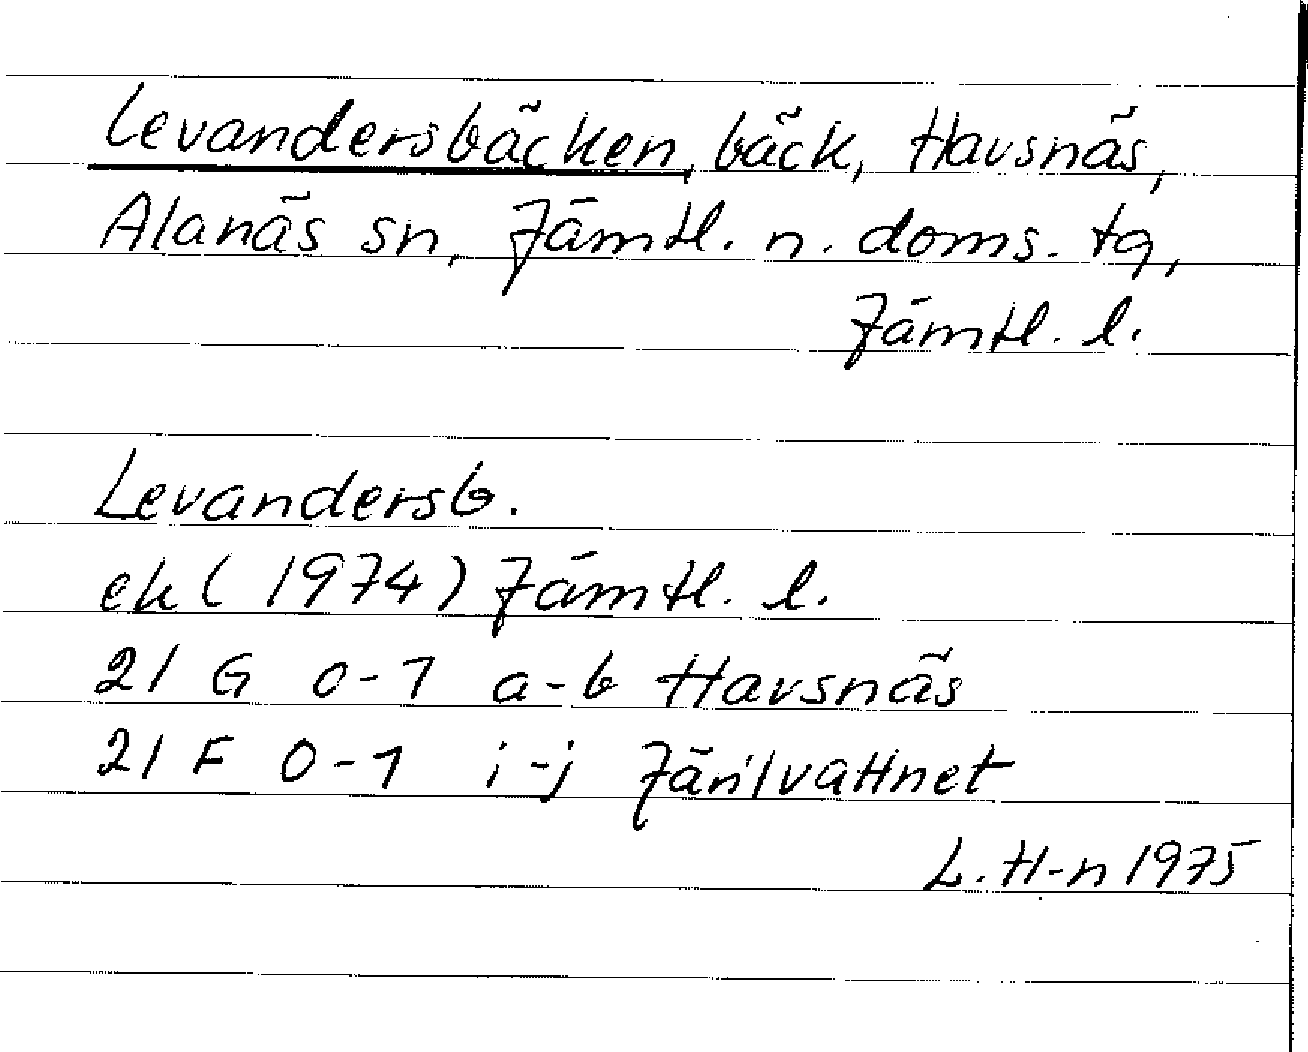 Levandersbäcken, bäck, Havsnäs,
Alanäs sn, Jämtl. n. doms. tg,
Jämtl. l.
Levandersb.
ek (1974) Jämtl. l.
21 G 0-1 a-b Havsnäs
21 F 0-1 i-j Järilvattnet
L. H-n 1975